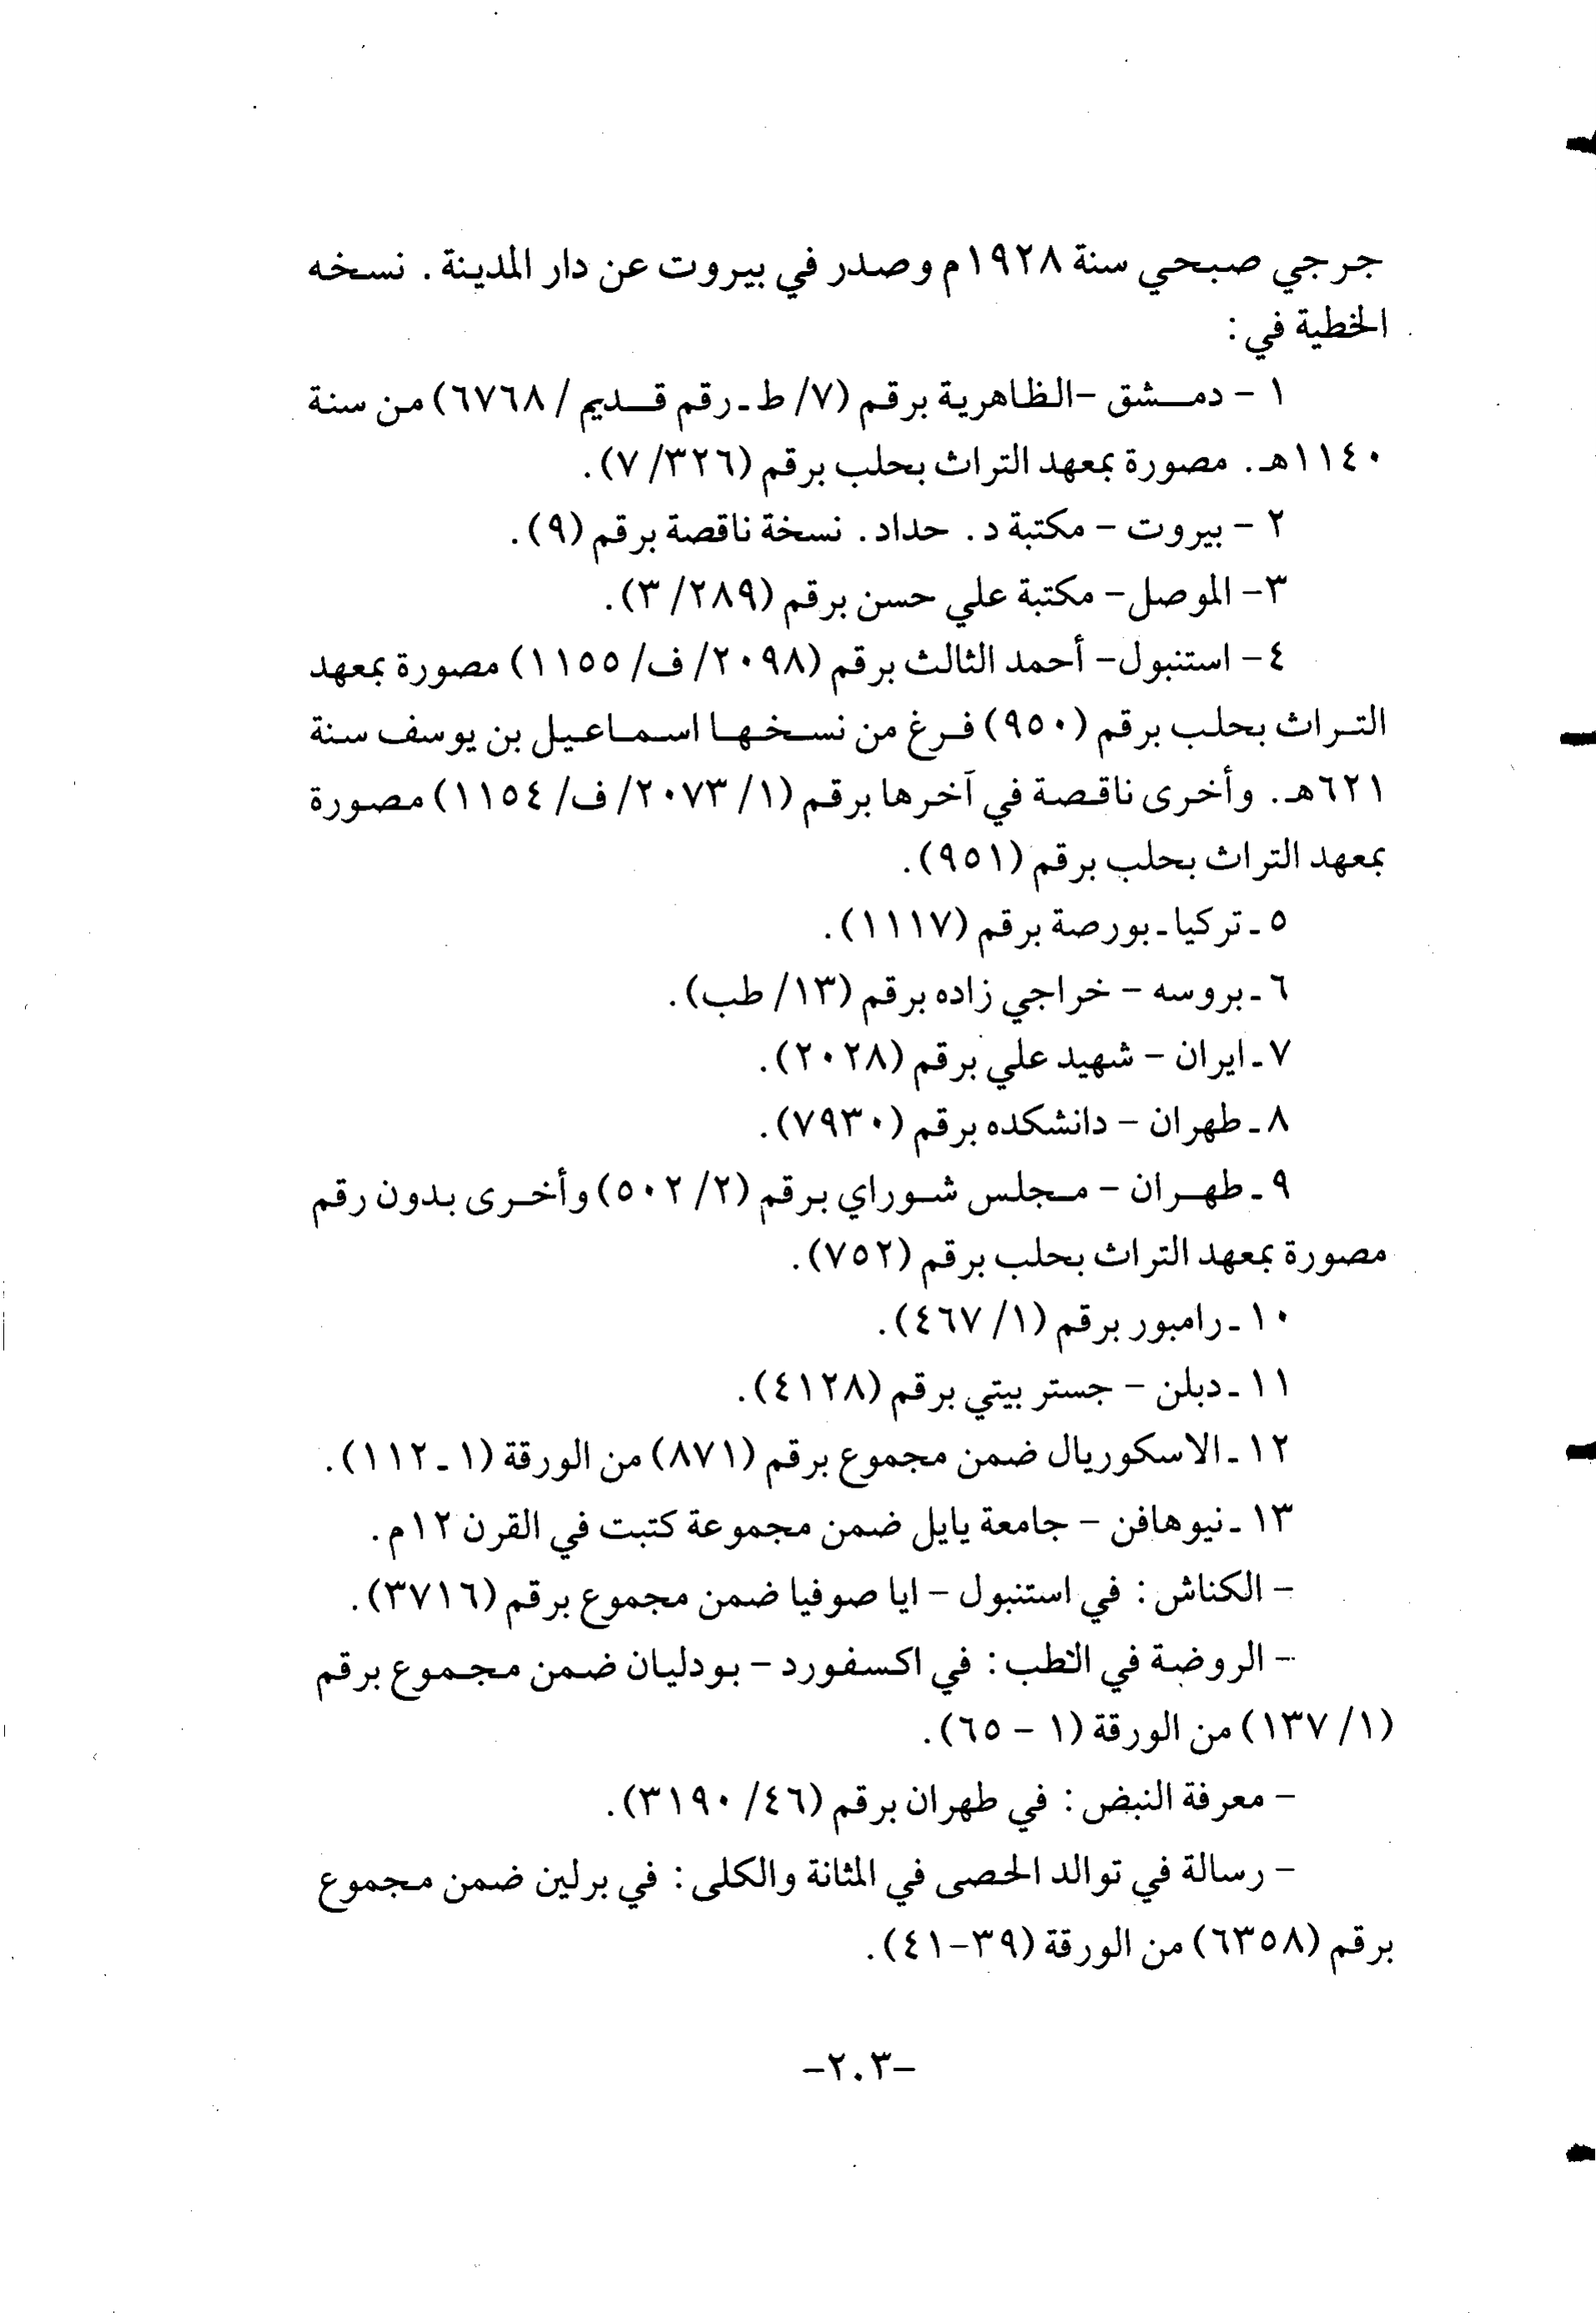 جرجي صبحي سنة ١٩٢٨م وصدر في بيروت عن دار المدينة. نسخه
الخطية في:
١ - دمشق -الظاهرية برقم (٧/ ط ـ رقم قديم / ٦٧٦٨) من سنة
١١٤٠هـ. مصورة بمعهد التراث بحلب برقم (٣٢٦/ ٧).
٢ - بيروت - مكتبة د. حداد. نسخة ناقصة برقم (٩).
٣- الموصل- مكتبة علي حسن برقم (٢٨٩/ ٣).
٤- استنبول- أحمد الثالث برقم (٢٠٩٨/ ف/ ١١٥٥) مصورة بمعهد
التراث بحلب برقم (٩٥٠) فرغ من نسخها اسماعيل بن يوسف سنة
٦٢١هـ. وأخرى ناقصة في آخرها برقم (١/ ٢٠٧٣/ ف/ ١١٥٤) مصورة
بمعهد التراث بحلب برقم (٩٥١).
٥ ـ تركيا ـ بورصة برقم (١١١٧).
٦ ـ بروسه - خراجي زاده برقم (١٣/ طب).
٧ ـ ايران - شهيد علي برقم (٢٠٢٨).
٨ ـ طهران - دانشكده برقم (٧٩٣٠).
٩ ـ طهران - مجلس شوراي برقم (٢/ ٥٠٢) وأخرى بدون رقم
مصورة بمعهد التراث بحلب برقم (٧٥٢).
١٠ ـ رامبور برقم (١/ ٤٦٧).
١١ ـ دبلن - جستر بيتي برقم (٤١٢٨).
١٢ ـ الاسكوريال ضمن مجموع برقم (٨٧١) من الورقة (١ ـ ١١٢).
١٣ ـ نيوهافن - جامعة يايل ضمن مجموعة كتبت في القرن ١٢م.
- الكناش: في استنبول - ايا صوفيا ضمن مجموع برقم (٣٧١٦).
- الروضة في الطب: في اكسفورد - بودليان ضمن مجموع برقم
(١/ ١٣٧) من الورقة (١ - ٦٥).
- معرفة النبض: في طهران برقم (٤٦/ ٣١٩٠).
- رسالة في توالد الحصى في المثانة والكلى: في برلين ضمن مجموع
برقم (٦٣٥٨) من الورقة (٣٩-٤١).
-٢٠٣-